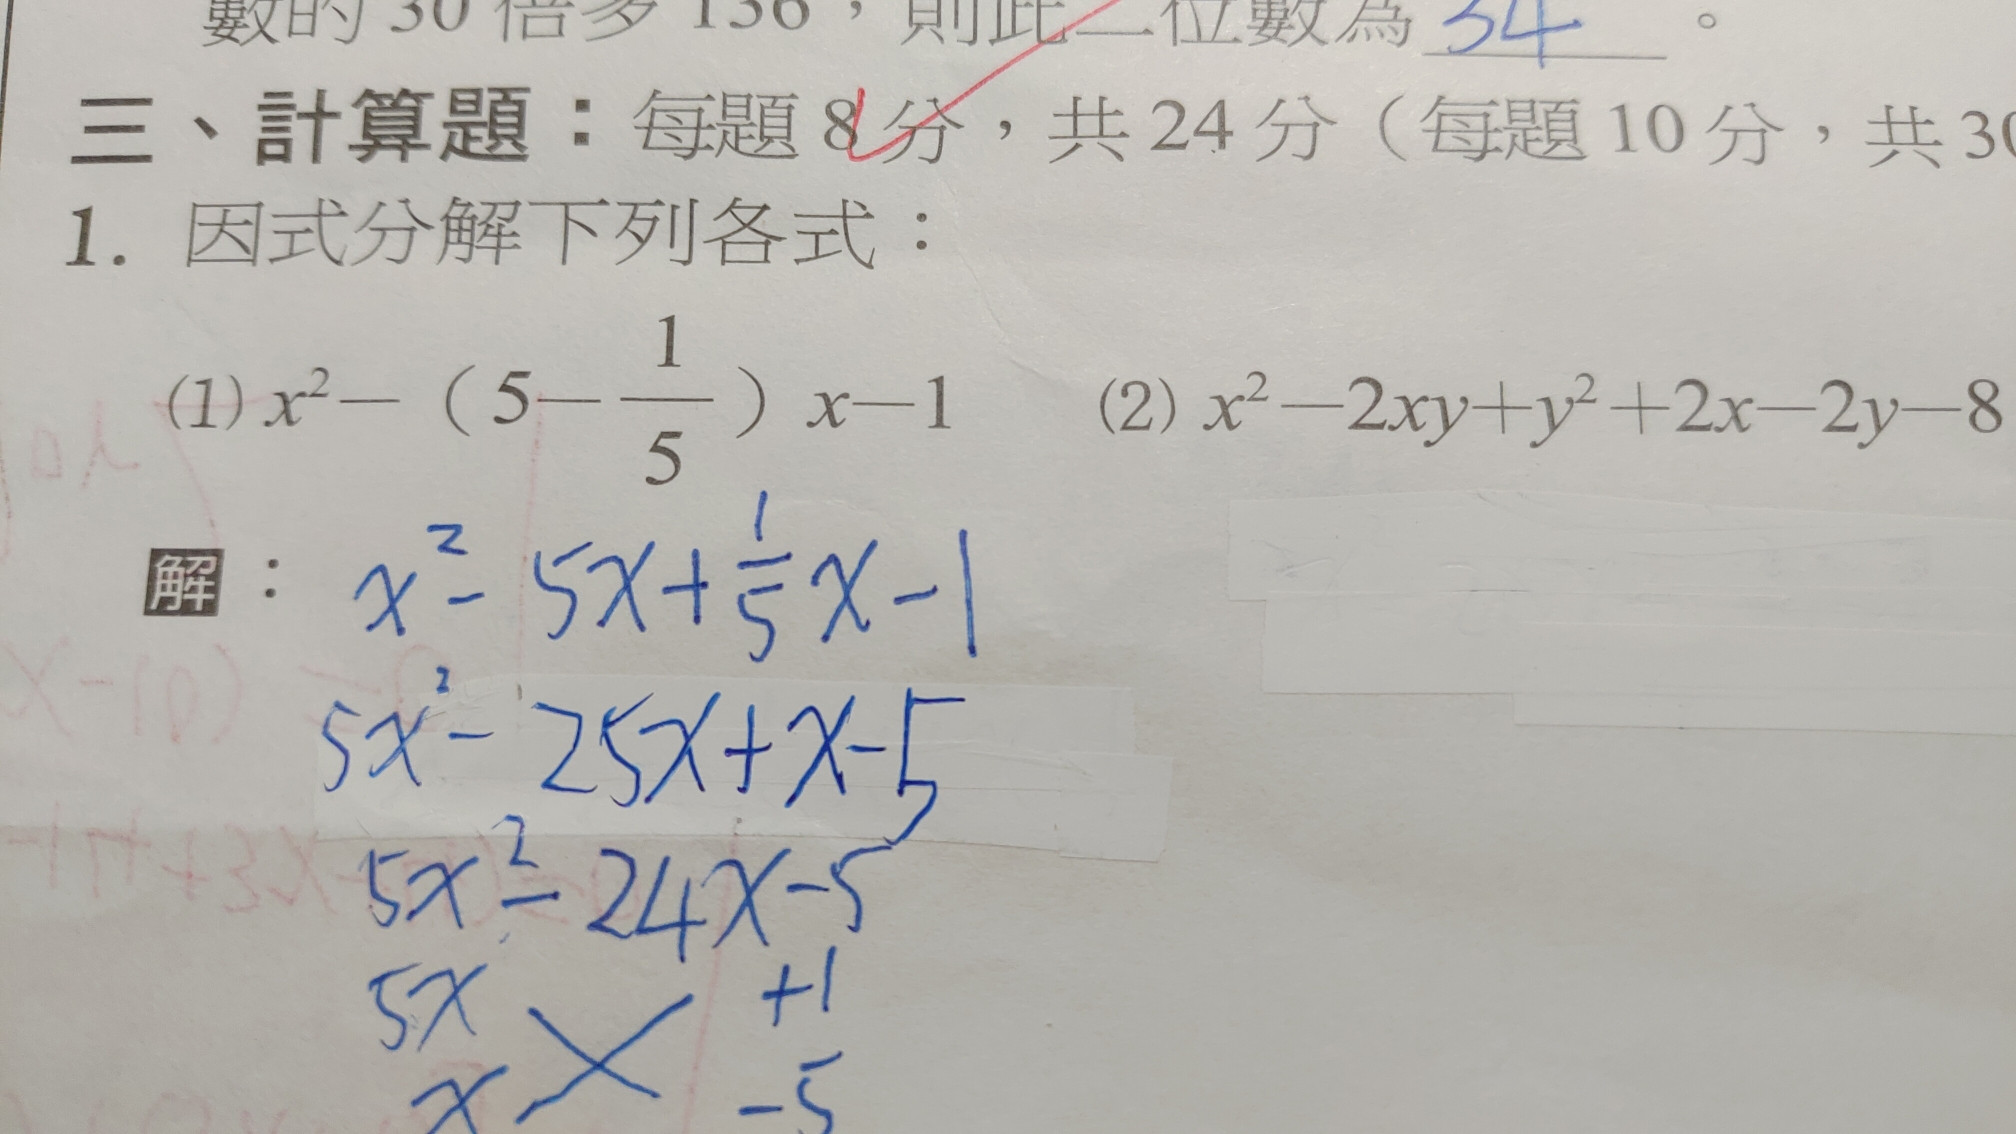 數的 30 倍多 136，則此二位數為 34 。
三、計算題：每題 8 分，共 24 分（每題 10 分，共 30
1. 因式分解下列各式：
(1) x²－（5－1/5）x－1 (2) x²－2xy＋y²＋2x－2y－8
解： x² - 5x + 1/5 x - 1
5x² - 25x + x - 5
5x² - 24x - 5
5x +1
x -5